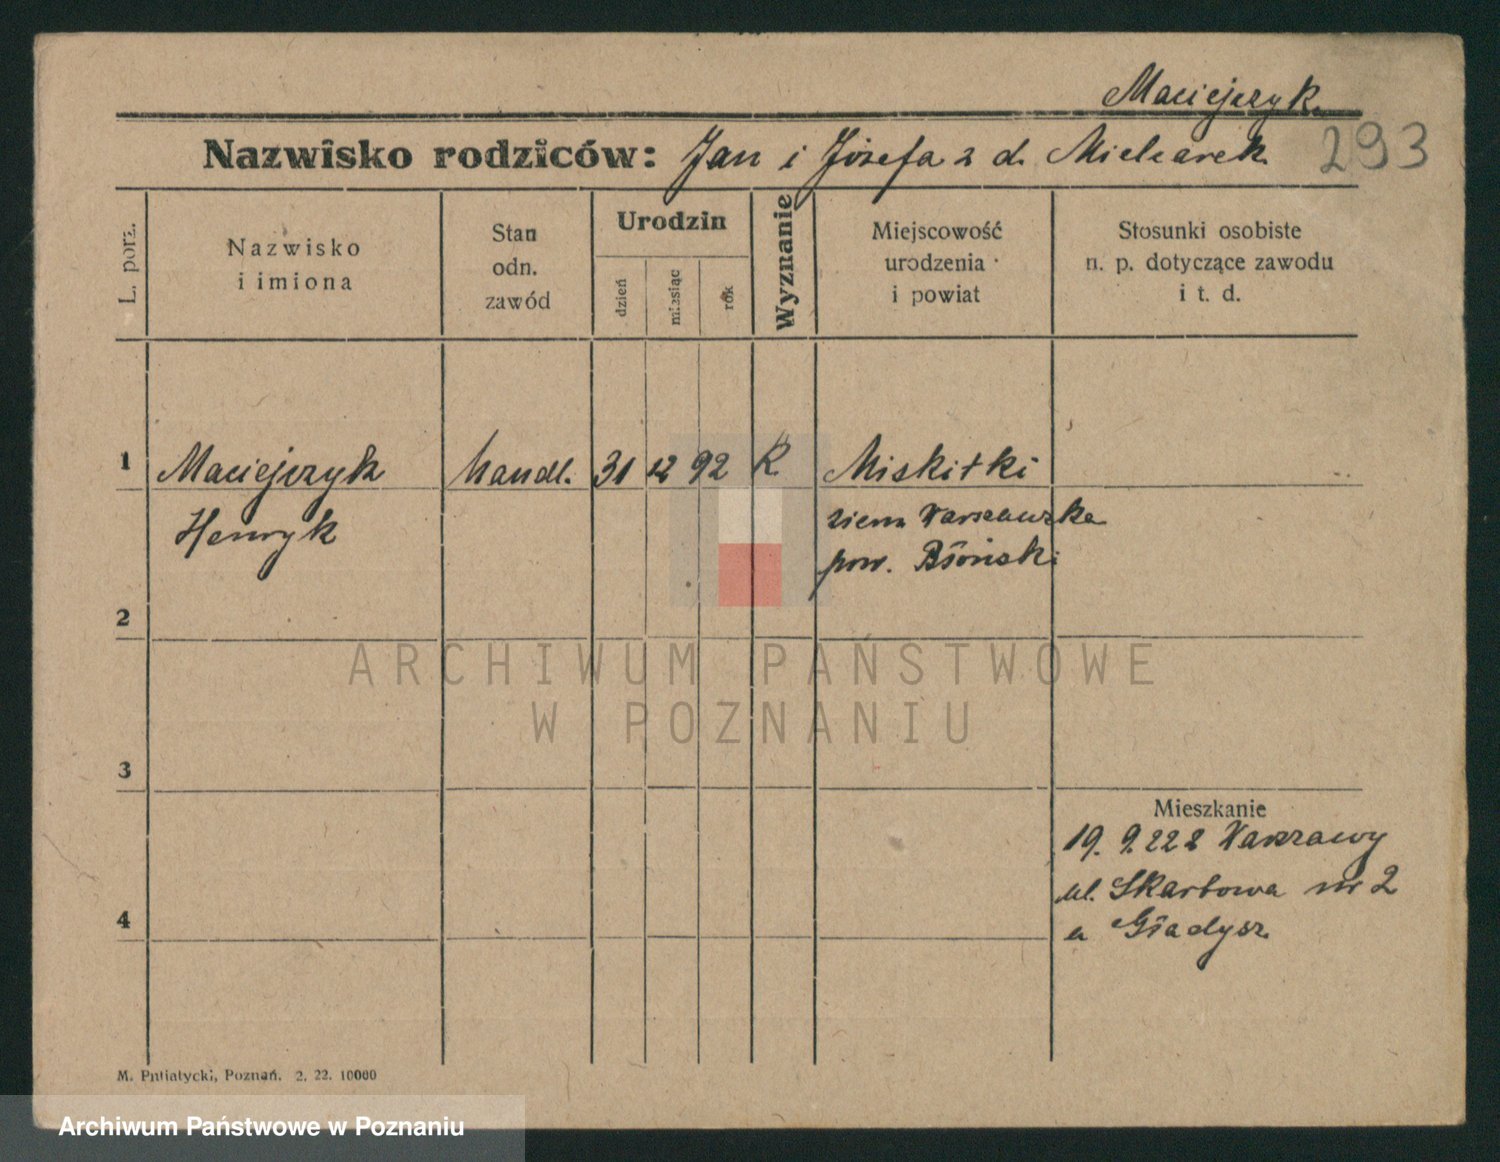 Maciejczyk.
Nazwisko rodziców: Jan i Józefa z d. Mielcarek
293
L. porz.
Nazwisko
i imiona
Stan
odn.
zawód
Urodzin
dzień
miesiąc
rok
Wyznanie
Miejscowość
urodzenia
i powiat
Stosunki osobiste
n. p. dotyczące zawodu
i t. d.
1 Maciejczyk handl. 31 12 92 K. Miskitki
Henryk ziem. Warszawska
pow. Błoński
2
ARCHIWUM PAŃSTWOWE
W POZNANIU
3
Mieszkanie
19. 9. 22 z Warszawy
ul. Skarbowa nr 2
4
u Gładysz
M. Putiatycki, Poznań. 2. 22. 10000
Archiwum Państwowe w Poznaniu